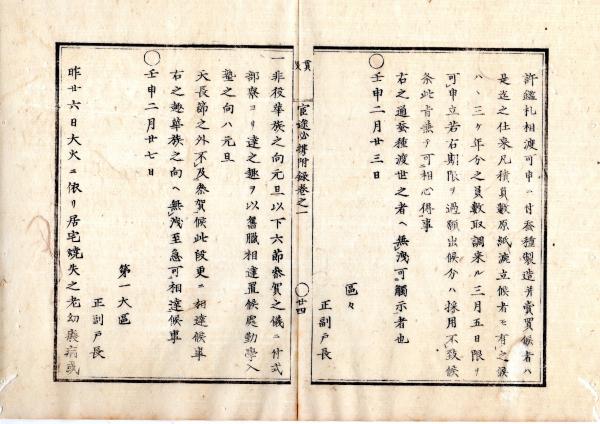 許鑑札相渡可申ニ付蚕種製造并賣買候者ハ
是迄之仕来凡積員數原紙漉立候者モ有之候
ハヽ三ケ年分之員數取調来ル三月五日限リ
可申立若右期限ヲ過願出候分ハ採用不致候
条此旨兼テ可相心得事
右之通蚕種渡世之者ヘ無洩可觸示者也
〇壬申二月廿三日
區々
正副戸長
官途必携附録巻之一
〇廿四
一非役華族之向元旦以下六節参賀之儀ニ付式
部寮ヨリ達之趣ヲ以舊臘相達置候處勤學入
塾之向ハ元旦
天長節之外不及参賀候此段更ニ相達候事
右之趣華族之向ヘ無洩至急可相達候事
〇壬申二月廿七日
第一大區
正副戸長
昨廿六日大火ニ依リ居宅焼失之老幼癈病或